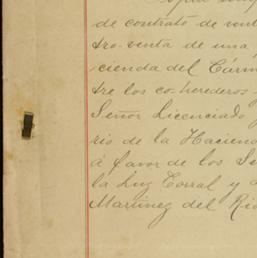 Copia simp
de contrato de vent
tro-venta de una
cienda del Cárm
tre los co-herederos
Señor Licenciado
rio de la Haciend
á favor de los Se
la Luz Corral y d
Martinez del Rio